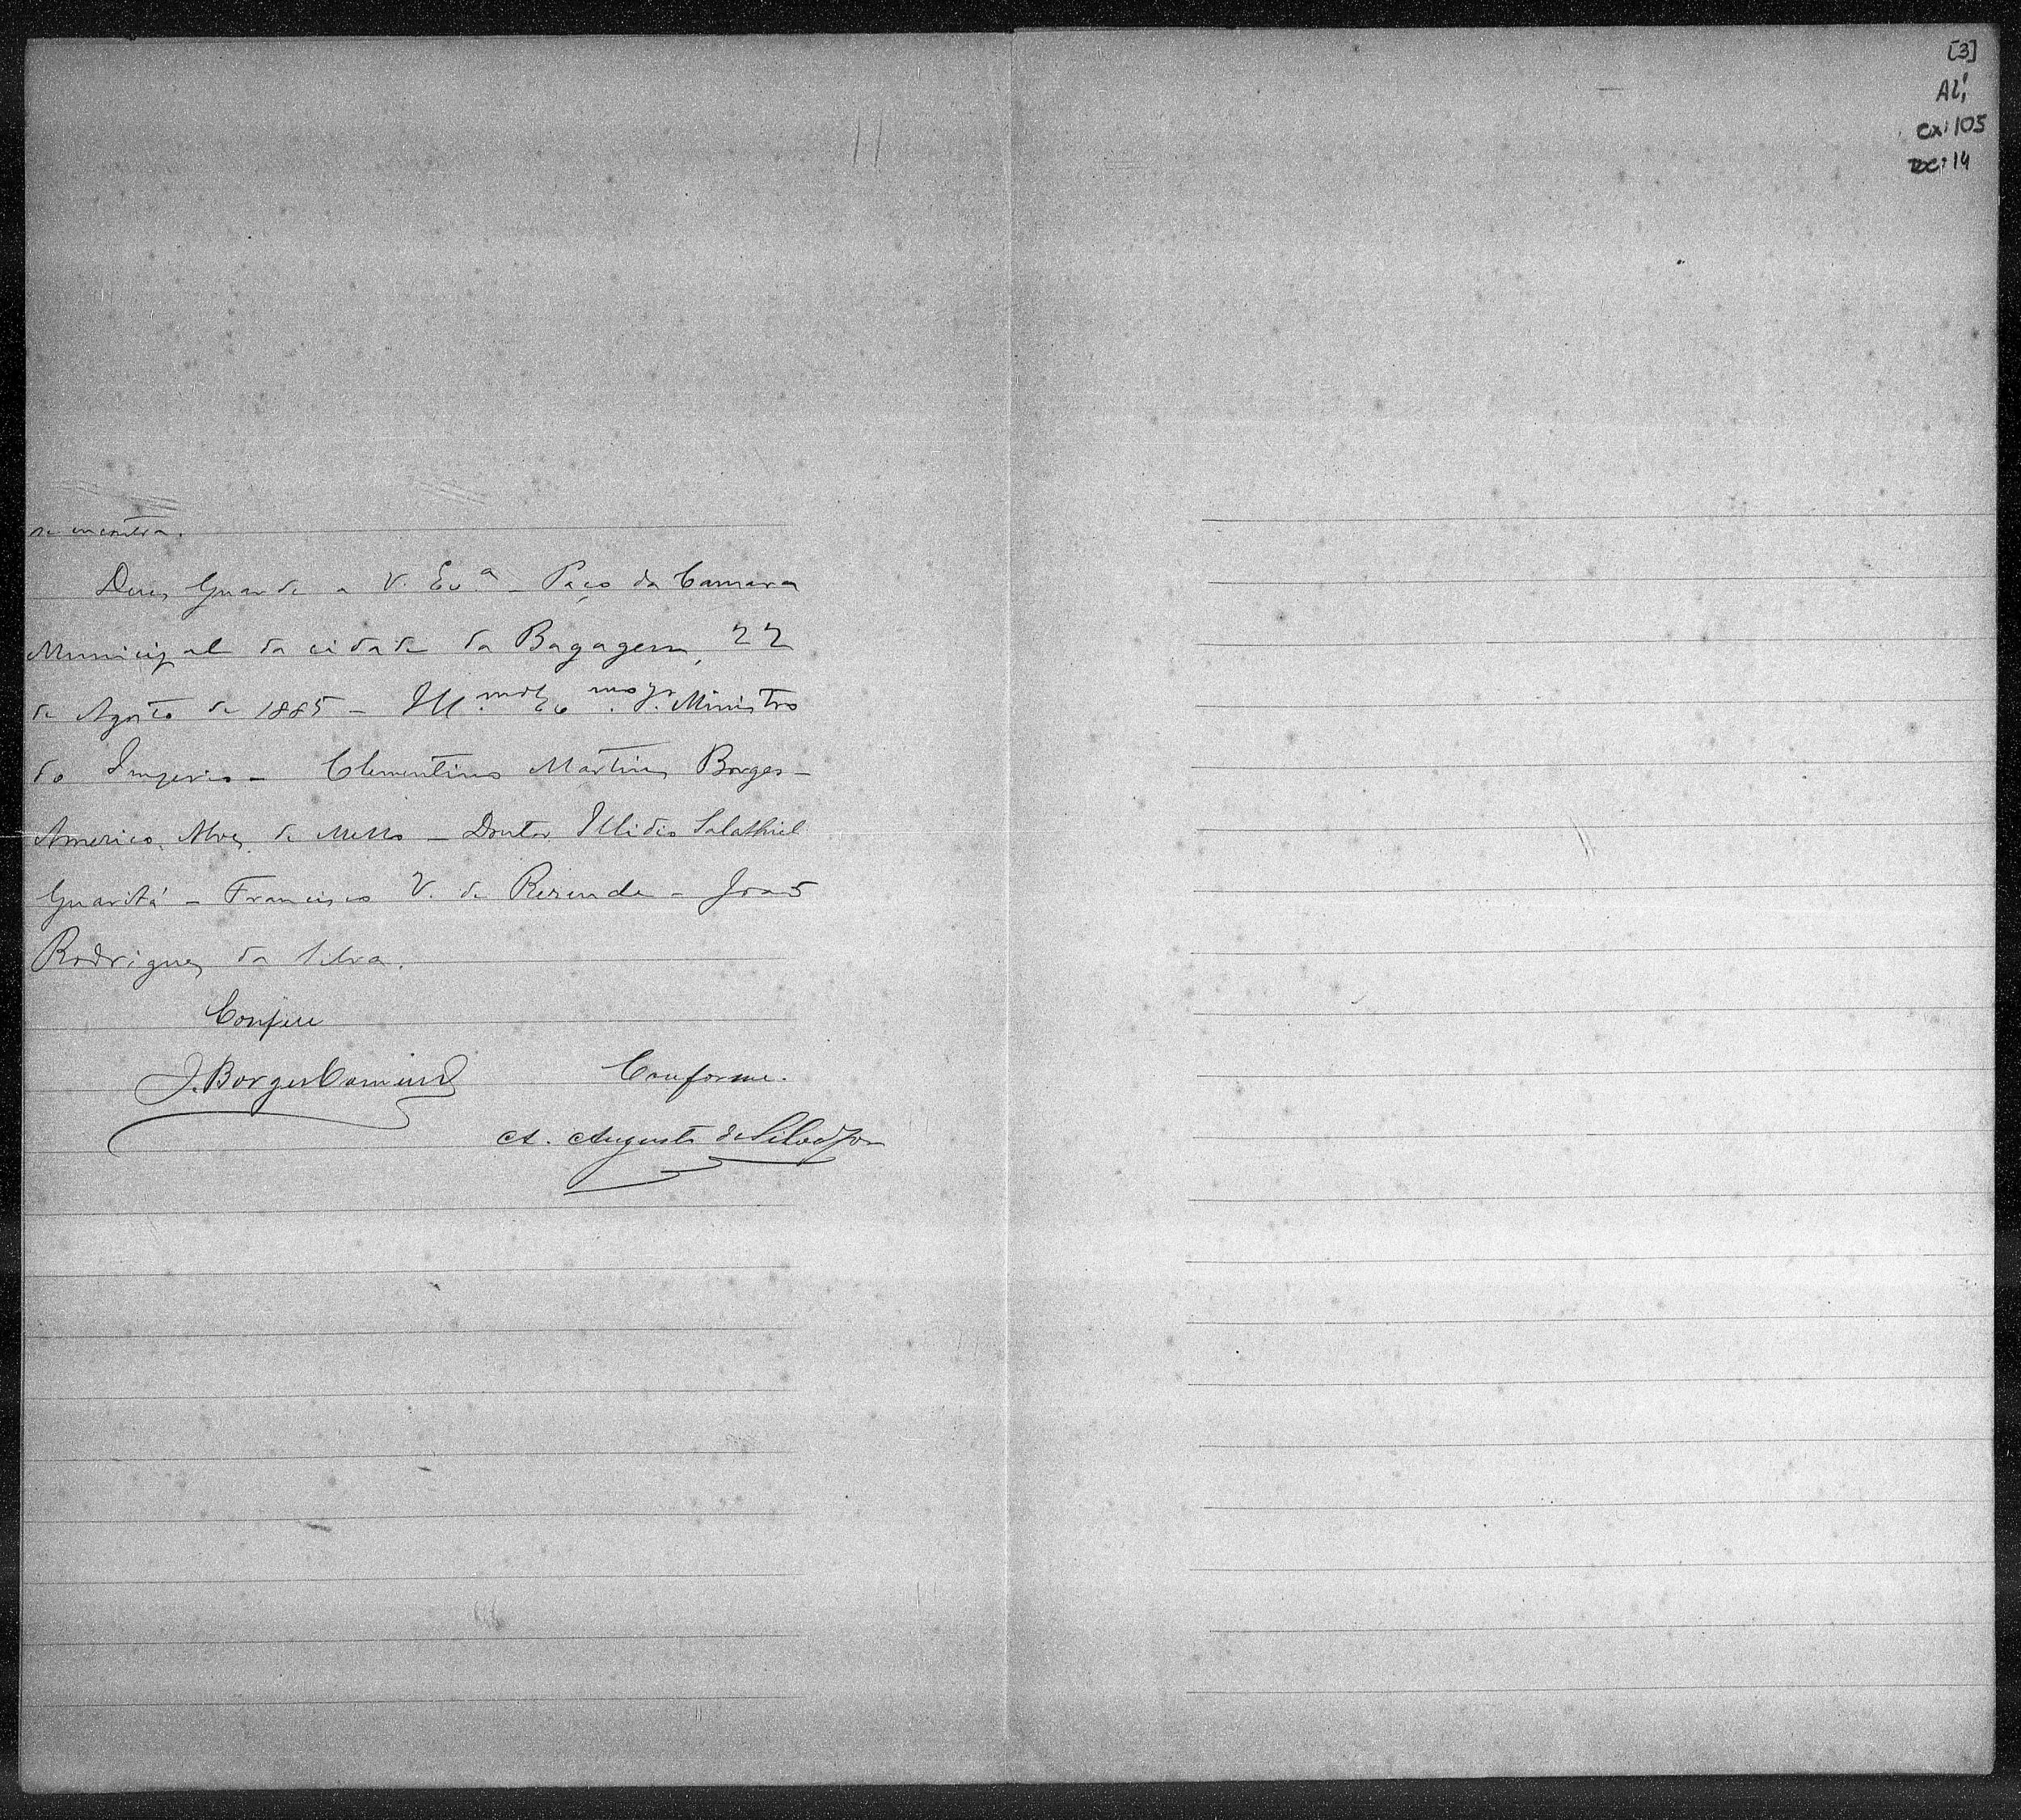 se encontra.
Deus Guarde a V. Ex.ª - Paço da Camara
Municipal da cidade da Bagagem, 22
de Agosto de 1885 - Ill.mo Ex.mo Sr. Ministro
do Imperio - Clementino Martins Borges -
Americo Alves de Mello - Doutor Illidio Salathiel
Guaritá - Francisco V. de Rezende - João
Rodrigues da Silva.
Confere
J. Borges
Conforme.
A. Augusto da Silva Jor
[3]
AI,
cx: 105
Dc: 14